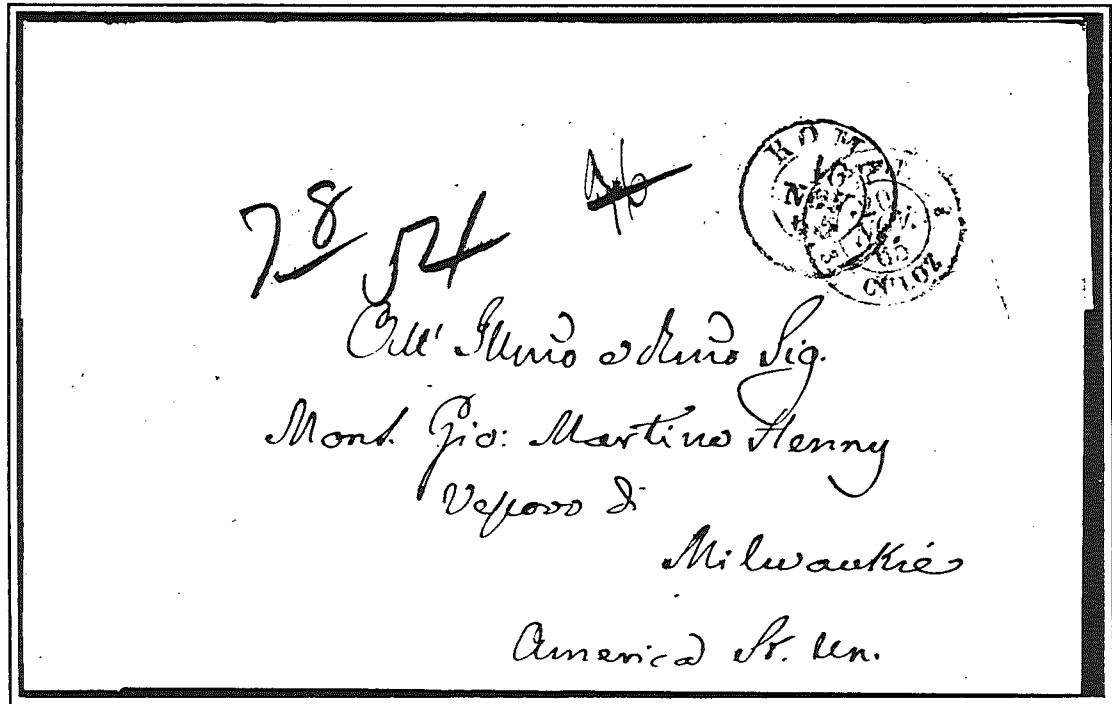 78 54
ROMA
16
CULOZ
All' Illmo e Rmo Sig.
Mons. Gio: Martino Henny
Vescovo di
Milwaukié
America St. Un.